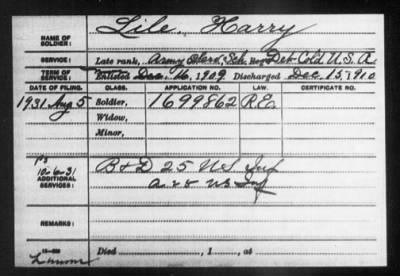 NAME OF SOLDIER: Lile, Harry
SERVICE: Late rank, Army Serv. Sch. Reg't Det Cold U.S.A.
TERM OF SERVICE: Enlisted Dec. 16, 1909 Discharged Dec. 15, 1910
DATE OF FILING. CLASS. APPLICATION NO. LAW. CERTIFICATE NO.
1931 Aug 5 Soldier, 1699862 R.E.
Widow,
Minor,
10-6-31
ADDITIONAL SERVICES: B + D 25 US Inf
25 US Inf
REMARKS:
Died , 1 , at